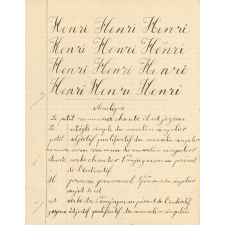 Henri Henri Henri
Henri Henri Henri
Henri Henri Henri
Henri Henri Henri
Analyse
Le petit chante il est joyeux
Le article simple du masculin singulier
petit adjectif qualificatif du masculin singulier
nom commun du masculin singulier
chante verbe chanter 1ère conjugaison au présent
de l'indicatif
Il pronom personnel 3ème personne du singulier
sujet de est
est verbe être 4ème conjugaison au présent de l'indicatif
joyeux adjectif qualificatif du masculin singulier